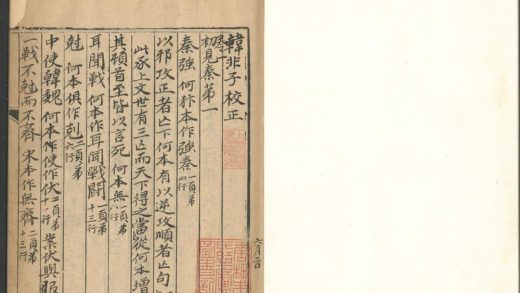 韓非子校正
初見秦第一
秦強 何犿本作強秦 一頁弟四行
以邪攻正者亾下何本有以逆攻順者亾句
此承上文世有三亾而天下得之當從何本增
其頓首至皆以言死 何本無 一頁弟八行
耳聞戰 何本作耳聞戰鬪 一頁弟十三行
尅 何本俱作剋 二頁弟六行
中使韓魏 何本使作伏 二頁弟十一行 案伏與服
一戰不尅而不齊 宋本作無齊 二頁弟十三行
六月二日